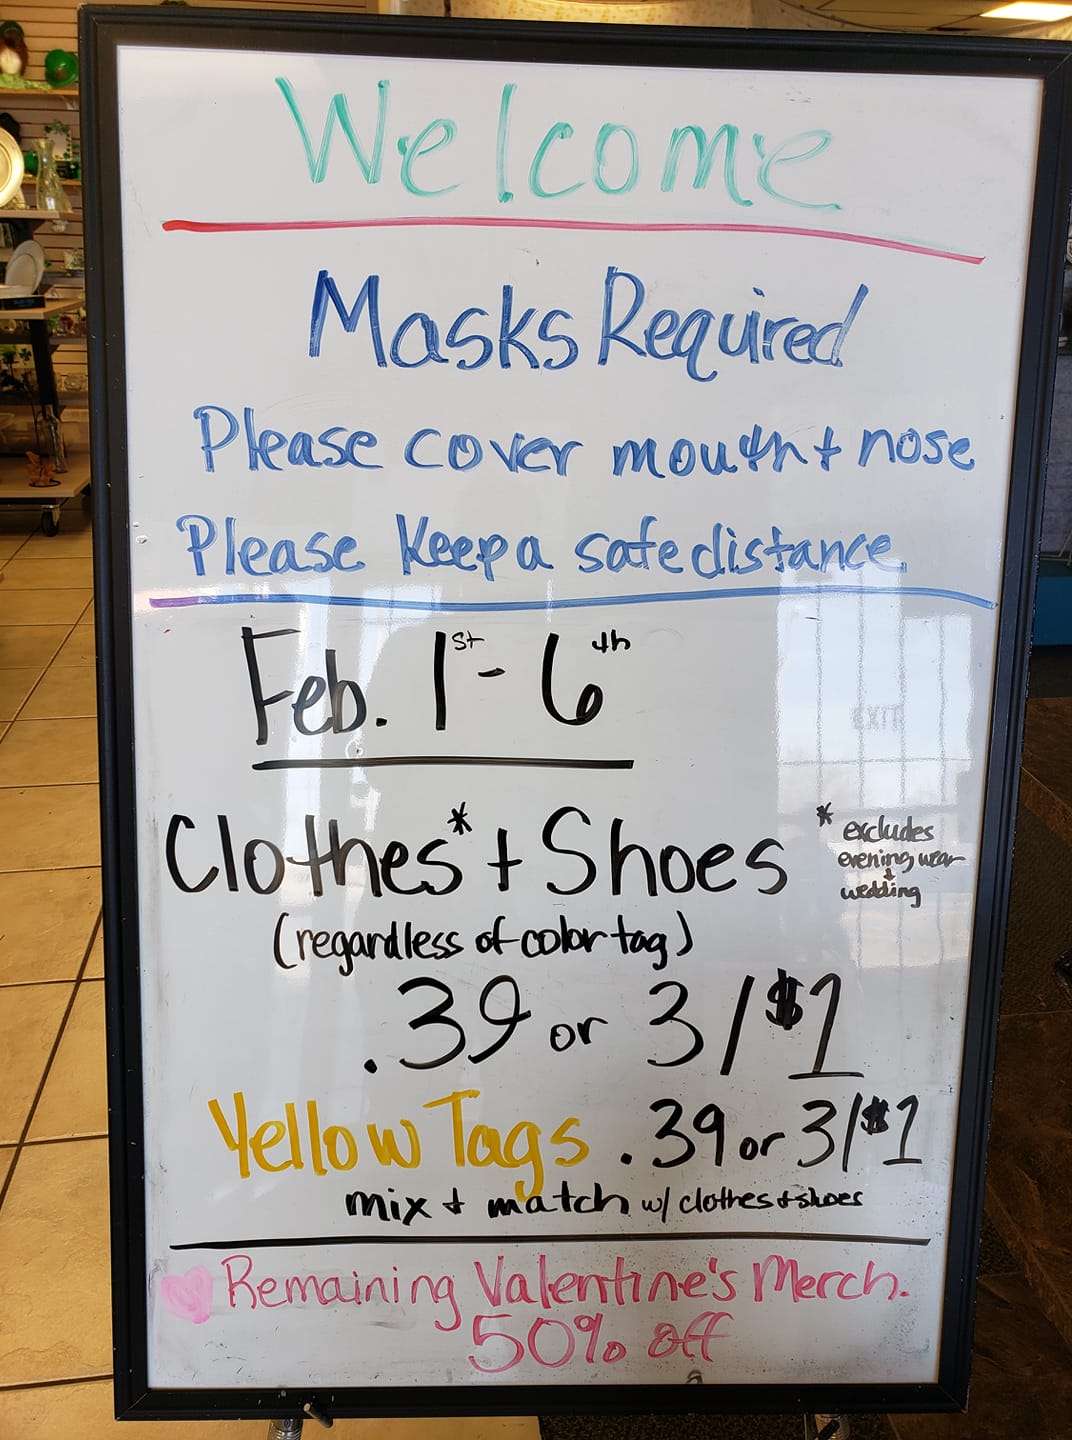 Welcome
Masks Required
Please cover mouth + nose
Please Keep a safe distance
Feb. 1st - 6th
Clothes* + Shoes
* excludes
evening wear
+
wedding
(regardless of color tag)
.39 or 3/$1
Yellow Tags .39 or 3/$1
mix + match w/ clothes + shoes
Remaining Valentine's Merch.
50% off
EXIT